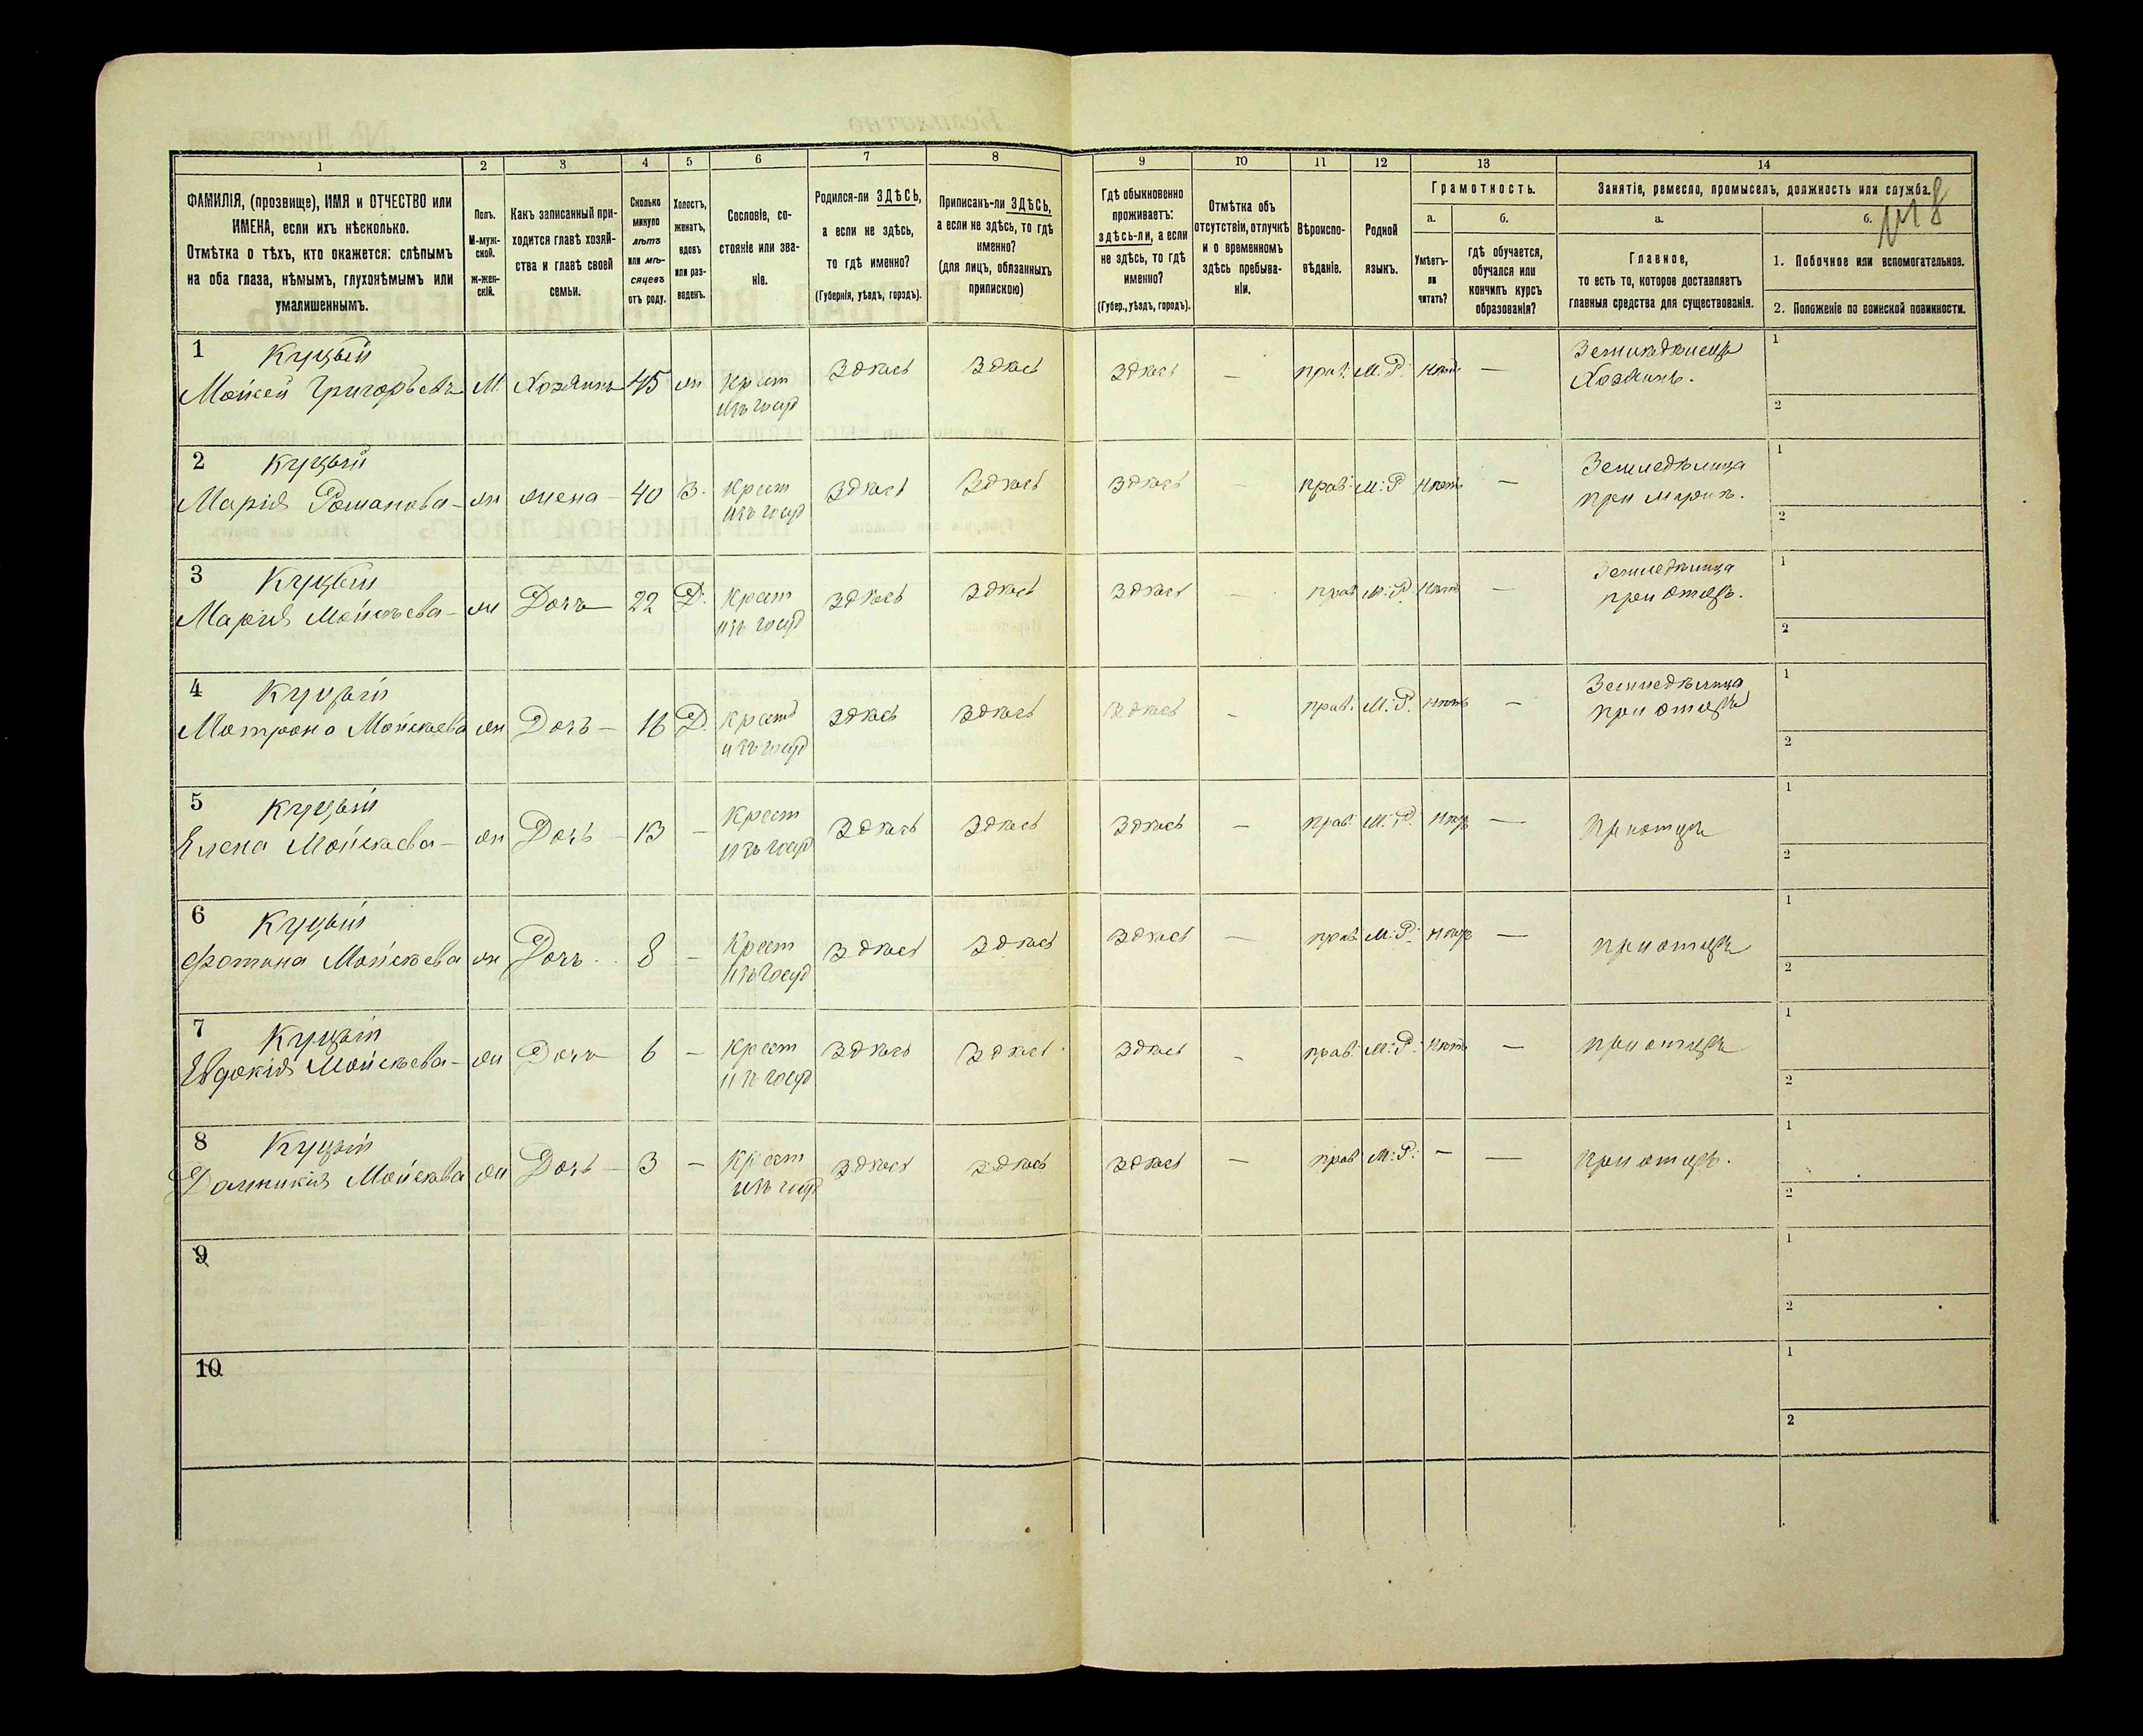 1 2 3 4 5 6 7 8 9 10 11 12 13 14
ФАМИЛІЯ, (прозвище), ИМЯ и ОТЧЕСТВО или
ИМЕНА, если ихъ нѣсколько.
Отмѣтка о тѣхъ, кто окажется: слѣпымъ
на оба глаза, нѣмымъ, глухонѣмымъ или
умалишеннымъ.
Полъ.
М-муж-
ской.
ж-жен-
скій.
Какъ записанный при-
ходится главѣ хозяй-
ства и главѣ своей
семьи.
Сколько
минуло
лѣтъ
или мѣ-
сяцевъ
отъ роду.
Холостъ,
женатъ,
вдовъ
или раз-
веденъ.
Сословіе, со-
стояніе или зва-
ніе.
Родился-ли ЗДѢСЬ,
а если не здѣсь,
то гдѣ именно?
(Губернія, уѣздъ, городъ).
Приписанъ-ли ЗДѢСЬ,
а если не здѣсь, то гдѣ
именно?
(для лицъ, обязанныхъ
припискою)
Гдѣ обыкновенно
проживаетъ:
здѣсь-ли, а если
не здѣсь, то гдѣ
именно?
(Губер., уѣздъ, городъ).
Отмѣтка объ
отсутствіи, отлучкѣ
и о временномъ
здѣсь пребыва-
ніи.
Вѣроиспо-
вѣданіе.
Родной
языкъ.
Грамотность.
а. б.
Умѣетъ-
ли
читать?
гдѣ обучается,
обучался или
кончилъ курсъ
образованія?
Занятіе, ремесло, промыселъ, должность или служба.
а. б.
Главное,
то есть то, которое доставляетъ
главныя средства для существованія.
1. Побочное или вспомогательное.
2. Положеніе по воинской повинности.
№ 8
1 Куцый
Мойсей Григорьевъ М Хозяинъ 45 ж Крест Здѣсь Здѣсь Здѣсь — прав. М. Р. Нѣтъ — Земледѣлецъ 1
изъ госуд Хозяинъ. 2
2 Куцый
Марія Романова ж жена 40 З. Крест Здѣсь Здѣсь Здѣсь — прав. М. Р. Нѣтъ — Земледѣлица 1
изъ госуд при мужѣ. 2
3 Куцый
Марія Мойсѣева ж Дочь 22 Д. Крест Здѣсь Здѣсь Здѣсь — прав. М. Р. Нѣтъ — Земледѣлица 1
изъ госуд при отцѣ. 2
4 Куцый
Матрона Мойсѣева ж Дочь 16 Д. Крест Здѣсь Здѣсь Здѣсь — прав. М. Р. Нѣтъ — Земледѣлица 1
изъ госуд при отцѣ 2
5 Куцый
Елена Мойсѣева ж Дочь 13 — Крест Здѣсь Здѣсь Здѣсь — прав. М. Р. Нѣтъ — При отцѣ 1
изъ госуд 2
6 Куцый
Фотина Мойсѣева ж Дочь 8 — Крест Здѣсь Здѣсь Здѣсь — прав. М. Р. Нѣтъ — При отцѣ 1
изъ госуд 2
7 Куцый
Евдокія Мойсѣева ж Дочь 6 — Крест Здѣсь Здѣсь Здѣсь — прав. М. Р. Нѣтъ — При отцѣ 1
изъ госуд 2
8 Куцый
Домникія Мойсѣва ж Дочь 3 — Крест Здѣсь Здѣсь Здѣсь — прав М. Р. — — При отцѣ. 1
изъ госуд 2
9 1
2
10 1
2